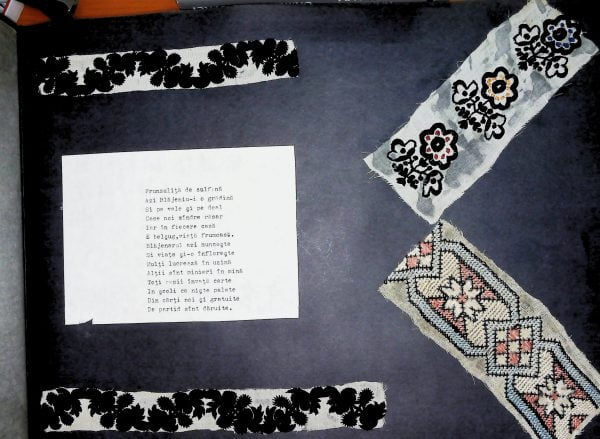 Frunzuliţă de sulfină
Azi Blăjeniu-i o grădină
Si pe vale şi pe deal
Case noi mîndre răsar
Iar în fiecare casă
E belşug,viaţă frumoasă.
Blăjenarul azi munceşte
Si viaţa şi-o înfloreşte
Mulţi lucrează în uzină
Alţii sînt mineri în mină
Toţi copii învaţă carte
In şcoli ca nişte palate
Din cărţi noi şi gratuite
De partid sînt dăruite.